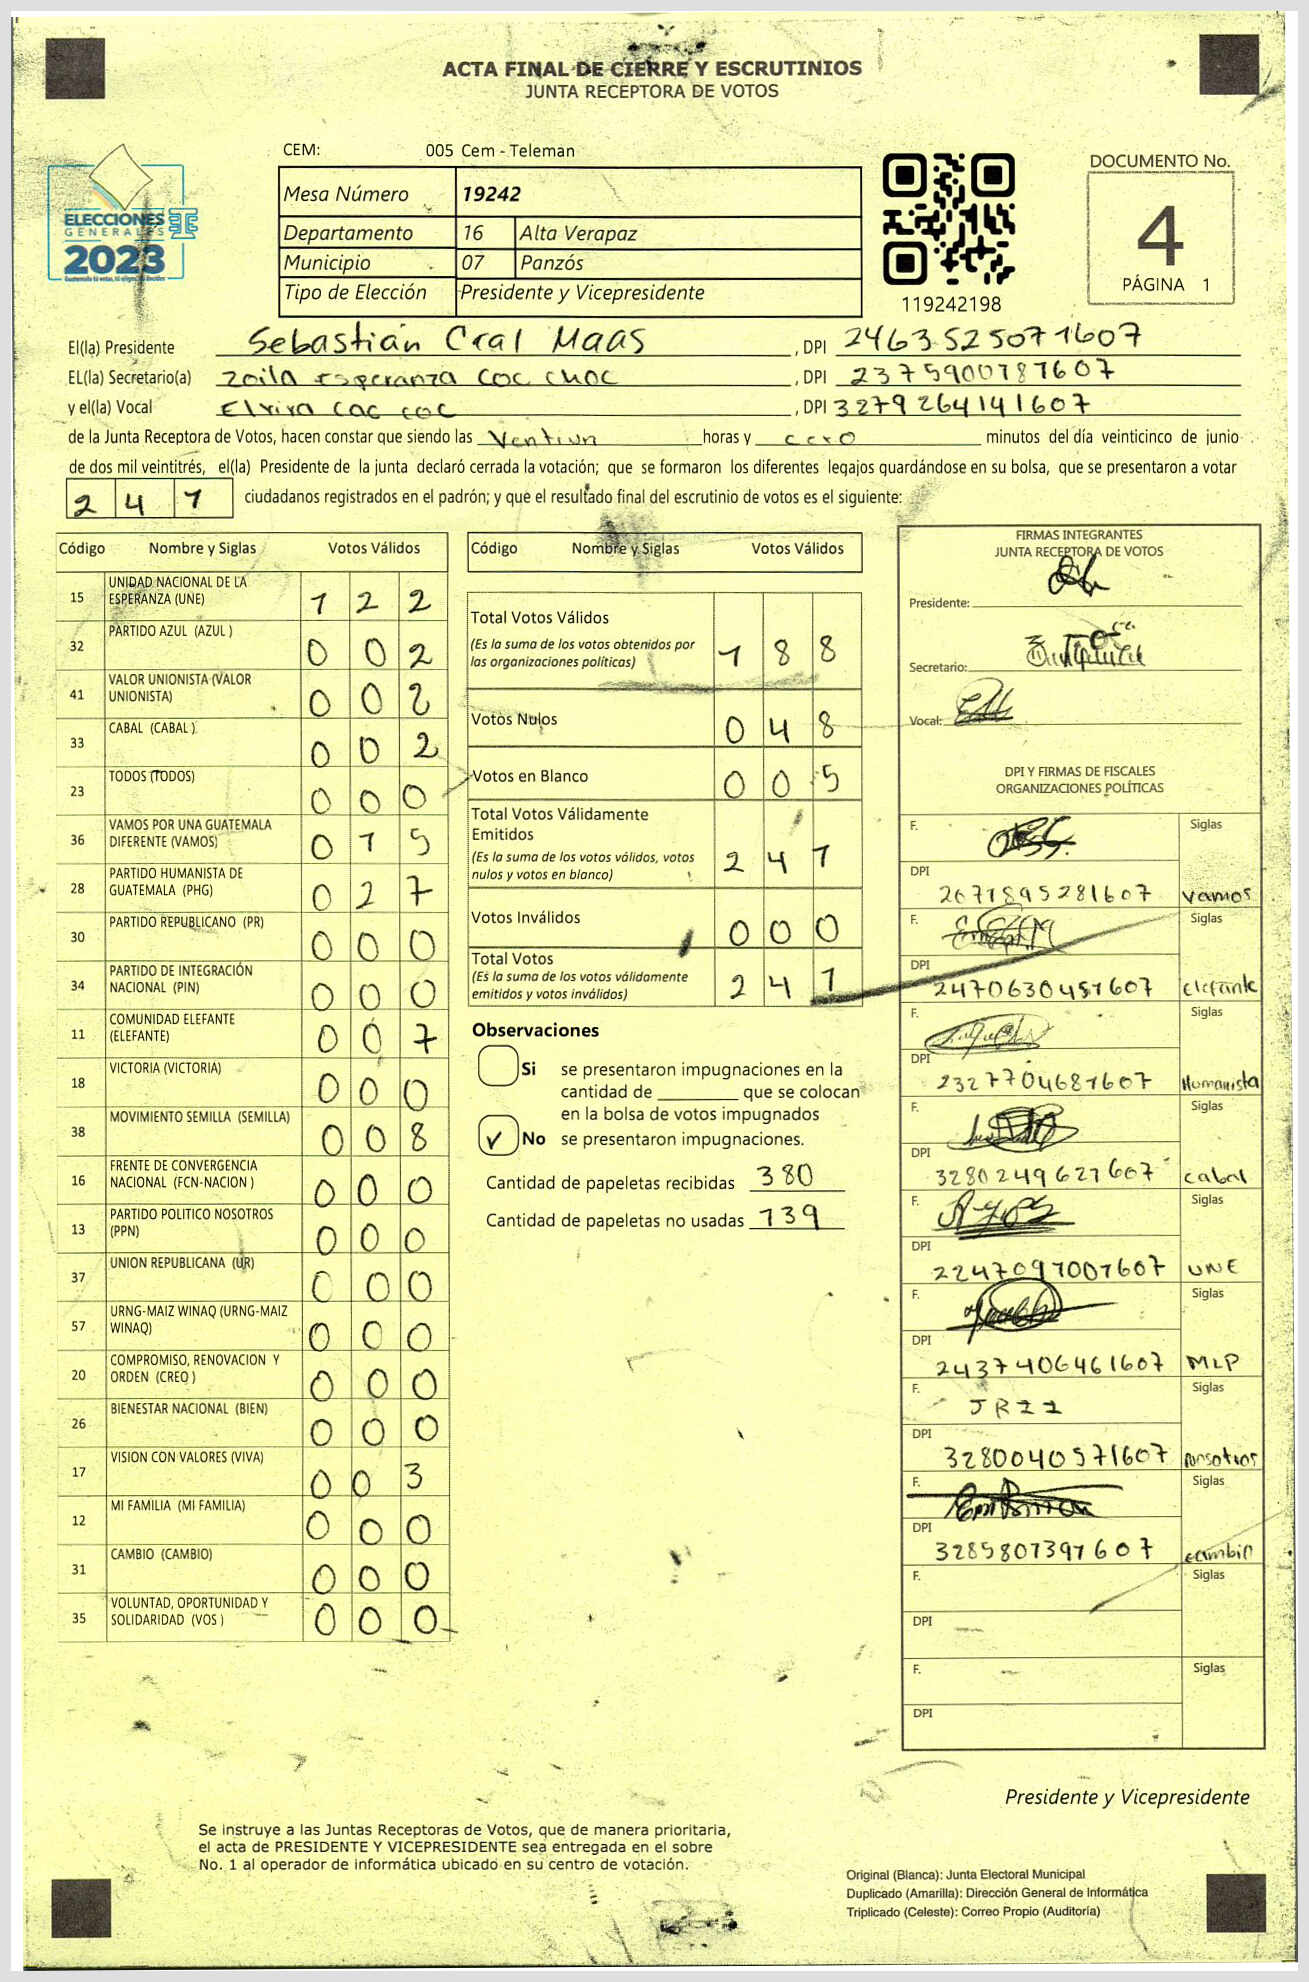 ACTA FINAL DE CIERRE Y ESCRUTINIOS
JUNTA RECEPTORA DE VOTOS
CEM: 005 Cem - Teleman
Mesa Número 19242
Departamento 16 Alta Verapaz
Municipio 07 Panzós
Tipo de Elección Presidente y Vicepresidente
ELECCIONES
GENERALES
2023
119242198
DOCUMENTO No.
4
PÁGINA 1
El(la) Presidente Sebastián Cral Maas , DPI 2463525071607
EL(la) Secretario(a) Zoila esperanza coc choc , DPI 2375900787607
y el(la) Vocal Elvira cac coc , DPI 3279264141607
de la Junta Receptora de Votos, hacen constar que siendo las Ventiun horas y cero minutos del día veinticinco de junio
de dos mil veintitrés, el(la) Presidente de la junta declaró cerrada la votación; que se formaron los diferentes legajos guardándose en su bolsa, que se presentaron a votar
2 4 1 ciudadanos registrados en el padrón; y que el resultado final del escrutinio de votos es el siguiente:
Código Nombre y Siglas Votos Válidos
15 UNIDAD NACIONAL DE LA ESPERANZA (UNE) 1 2 2
32 PARTIDO AZUL (AZUL ) 0 0 2
41 VALOR UNIONISTA (VALOR UNIONISTA) 0 0 2
33 CABAL (CABAL ) 0 0 2
23 TODOS (TODOS) 0 0 0
36 VAMOS POR UNA GUATEMALA DIFERENTE (VAMOS) 0 1 5
28 PARTIDO HUMANISTA DE GUATEMALA (PHG) 0 2 7
30 PARTIDO REPUBLICANO (PR) 0 0 0
34 PARTIDO DE INTEGRACIÓN NACIONAL (PIN) 0 0 0
11 COMUNIDAD ELEFANTE (ELEFANTE) 0 0 7
18 VICTORIA (VICTORIA) 0 0 0
38 MOVIMIENTO SEMILLA (SEMILLA) 0 0 8
16 FRENTE DE CONVERGENCIA NACIONAL (FCN-NACION ) 0 0 0
13 PARTIDO POLITICO NOSOTROS (PPN) 0 0 0
37 UNION REPUBLICANA (UR) 0 0 0
57 URNG-MAIZ WINAQ (URNG-MAIZ WINAQ) 0 0 0
20 COMPROMISO, RENOVACION Y ORDEN (CREO ) 0 0 0
26 BIENESTAR NACIONAL (BIEN) 0 0 0
17 VISION CON VALORES (VIVA) 0 0 3
12 MI FAMILIA (MI FAMILIA) 0 0 0
31 CAMBIO (CAMBIO) 0 0 0
35 VOLUNTAD, OPORTUNIDAD Y SOLIDARIDAD (VOS ) 0 0 0
Código Nombre y Siglas Votos Válidos
Total Votos Válidos 1 8 8
(Es la suma de los votos obtenidos por
las organizaciones políticas)
Votos Nulos 0 4 8
Votos en Blanco 0 0 5
Total Votos Válidamente
Emitidos 2 4 1
(Es la suma de los votos válidos, votos
nulos y votos en blanco)
Votos Inválidos 0 0 0
Total Votos 2 4 1
(Es la suma de los votos válidamente
emitidos y votos inválidos)
Observaciones
Si se presentaron impugnaciones en la
cantidad de ________ que se colocan
en la bolsa de votos impugnados
✓ No se presentaron impugnaciones.
Cantidad de papeletas recibidas 380
Cantidad de papeletas no usadas 139
FIRMAS INTEGRANTES
JUNTA RECEPTORA DE VOTOS
Presidente:
Secretario:
Vocal:
DPI Y FIRMAS DE FISCALES
ORGANIZACIONES POLÍTICAS
F. Siglas
DPI 2671895281607 vamos
F. Siglas
DPI 2470630451607 elefante
F. Siglas
DPI 2327704681607 Humanista
F. Siglas
DPI 3280249621607 cabal
F. Siglas
DPI 2247097001607 UNE
F. Siglas
DPI 2437406461607 MLP
F. JR Siglas
DPI 3280040571607 nosotros
F. Siglas
DPI 3285807391607 cambio
F. Siglas
DPI
F. Siglas
DPI
Presidente y Vicepresidente
Se instruye a las Juntas Receptoras de Votos, que de manera prioritaria,
el acta de PRESIDENTE Y VICEPRESIDENTE sea entregada en el sobre
No. 1 al operador de informática ubicado en su centro de votación.
Original (Blanca): Junta Electoral Municipal
Duplicado (Amarilla): Dirección General de Informática
Triplicado (Celeste): Correo Propio (Auditoría)